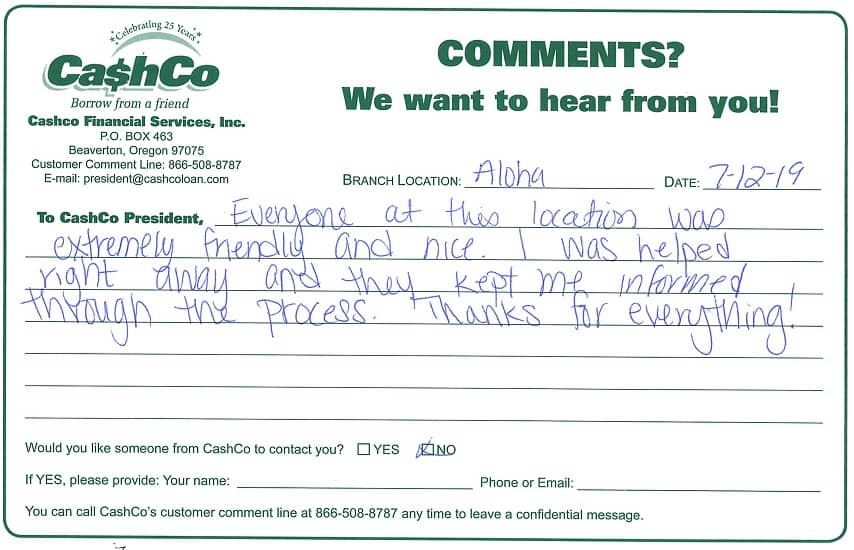 Celebrating 25 Years
Ca$hCo
Borrow from a friend
Cashco Financial Services, Inc.
P.O. BOX 463
Beaverton, Oregon 97075
Customer Comment Line: 866-508-8787
E-mail: president@cashcoloan.com
COMMENTS?
We want to hear from you!
BRANCH LOCATION: Aloha DATE: 7-12-19
TO CASHCO PRESIDENT, Everyone at this location was
extremely friendly and nice. I was helped
right away and they kept me informed
through the process. Thanks for everything!
Would you like someone from CashCo to contact you? ☐ YES ☑ NO
If YES, please provide: Your name: Phone or Email:
You can call CashCo's customer comment line at 866-508-8787 any time to leave a confidential message.